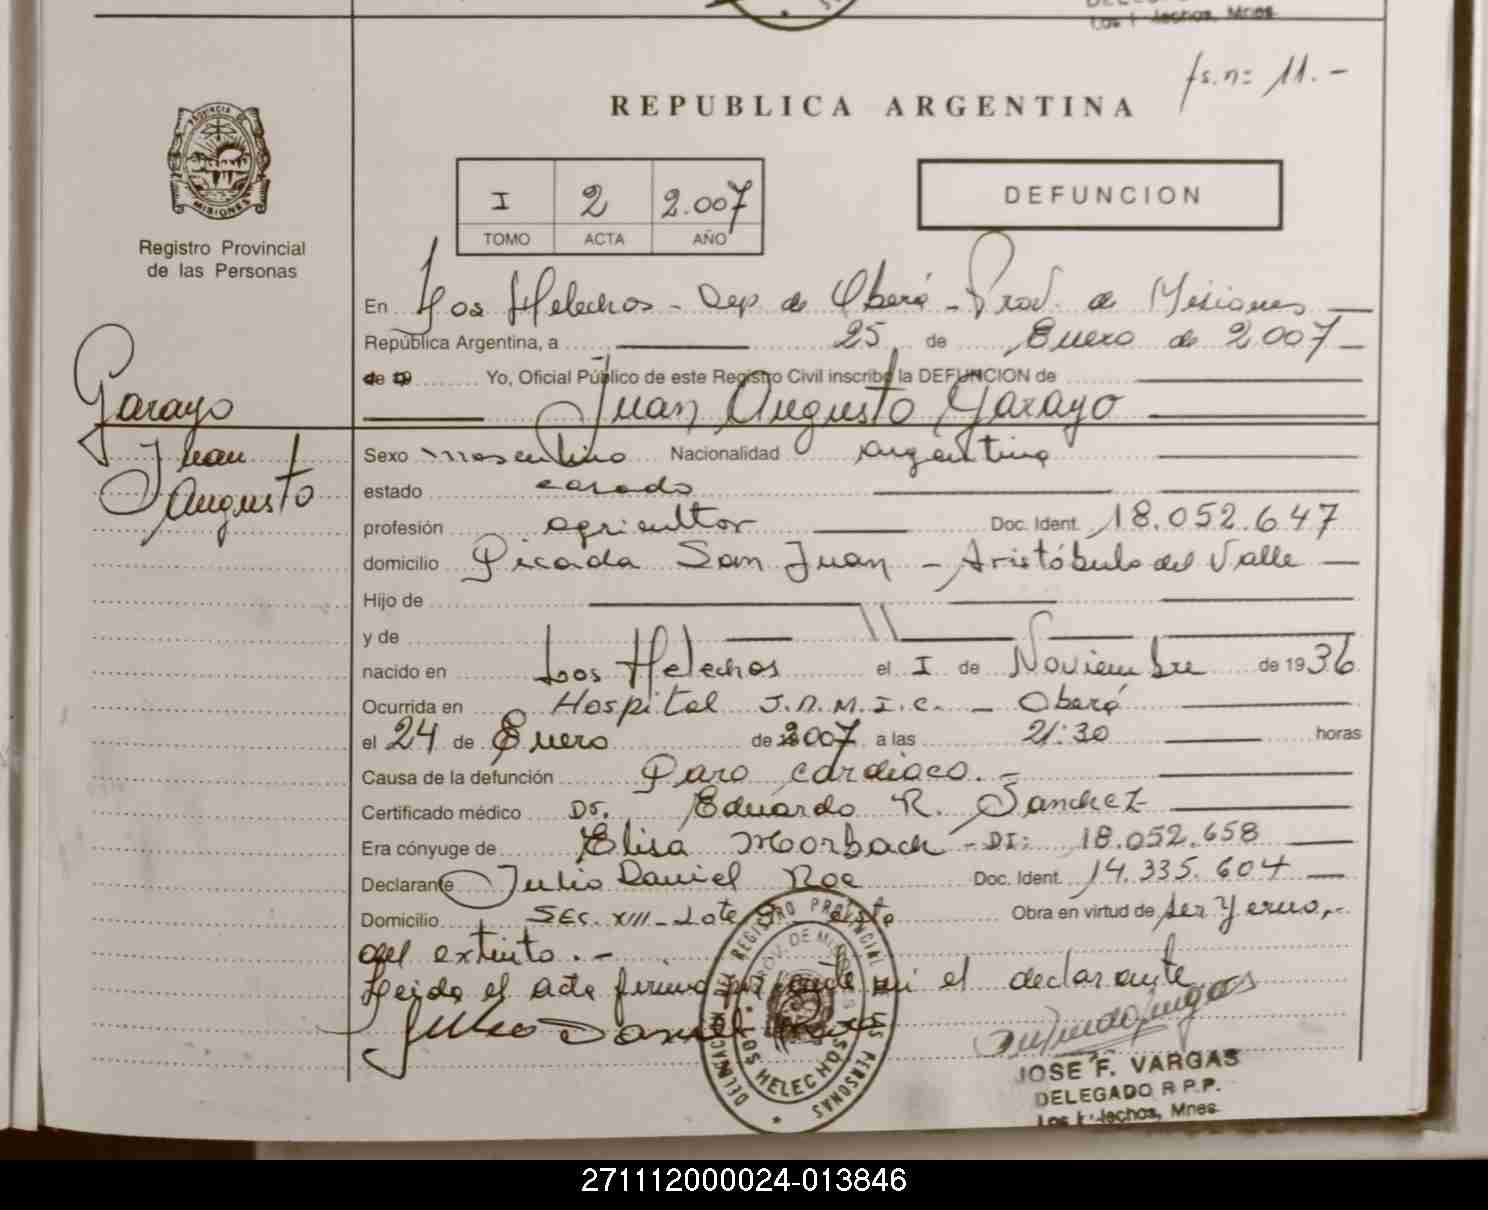 Los Helechos, Mnes.
fs.n: 11.-
REPUBLICA ARGENTINA
PROVINCIA DE MISIONES
I 2 2.007
TOMO ACTA AÑO
DEFUNCION
Registro Provincial
de las Personas
En Los Helechos - Dep. de Oberá - Prov. de Misiones
República Argentina, a 25 de Enero de 2007
de 19 Yo, Oficial Público de este Registro Civil inscribo la DEFUNCION de
Juan Augusto Garayo
Garayo
Juan
Augusto
Sexo masculino Nacionalidad argentina
estado casado
profesión agricultor Doc. Ident. 18.052.647
domicilio Picada San Juan - Aristóbulo del Valle
Hijo de
y de
nacido en Los Helechos el I de Noviembre de 1936
Ocurrida en Hospital S.A.M.I.C. - Oberá
el 24 de Enero de 2007 a las 21:30 horas
Causa de la defunción Paro cardiaco.-
Certificado médico Dr. Eduardo R. Sanchez
Era cónyuge de Elisa Morbach - DI: 18.052.658
Declarante Julio Daniel Roe Doc. Ident. 14.335.604
Domicilio Sec. XIII - Lote Obra en virtud de ser Yerno,-
del extinto.-
Leida el acta firma ante mi el declarante
Julio Daniel
DELEGACION DEL REGISTRO PROVINCIAL DE LAS PERSONAS
PROV. DE MISIONES
LOS HELECHOS
JOSE F. VARGAS
DELEGADO R.P.P.
Los Helechos, Mnes.
271112000024-013846